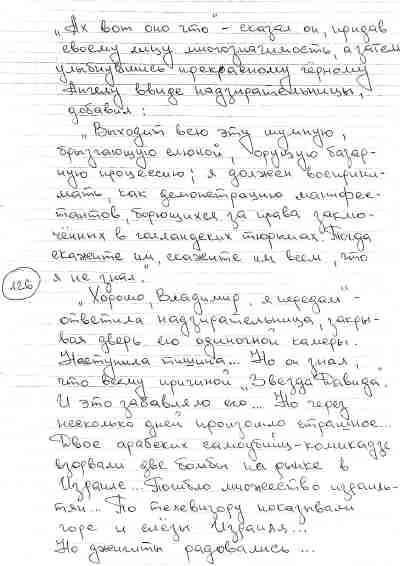 „Ах вот оно что" - сказал он, придав
своему лицу многозначимость, а затем
улыбнувшись прекрасному чёрному
Ангелу ввиде надзирательницы,
добавил:
„Выходит всю эту шумную,
брызгающую слюной, орущую базар-
ную процессию; я должен восприни-
мать, как демонстрацию манифес-
тантов, борющихся за права заклю-
чённых в голландских тюрьмах. Тогда
скажите им, скажите им всем, что
я не знал."
126
„Хорошо, Владимир, я передам" -
ответила надзирательница, закры-
вая дверь его одиночной камеры.
Наступила тишина... Но он знал,
что всему причиной „Звезда Давида".
И это забавляло его... Но через
несколько дней произошло страшное...
Двое арабских самоубийц-комикадзе
взорвали две бомбы на рынке в
Израиле... Погибло множество израиль-
тян... По телевизору показывали
горе и слёзы Израиля...
Но джигиты радовались...